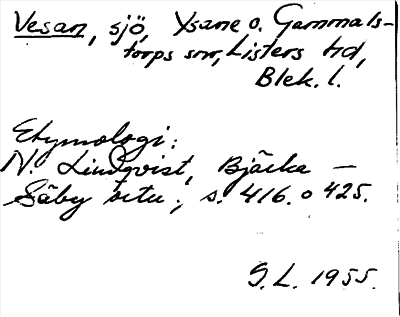 Vesan, sjö, Ysane o. Gammals-
torps snr, Listers hd,
Blek. l.
Etymologi:
N. Lindqvist, Bjärka —
Säby ortn., s. 416. o 425.
S.L. 1955.